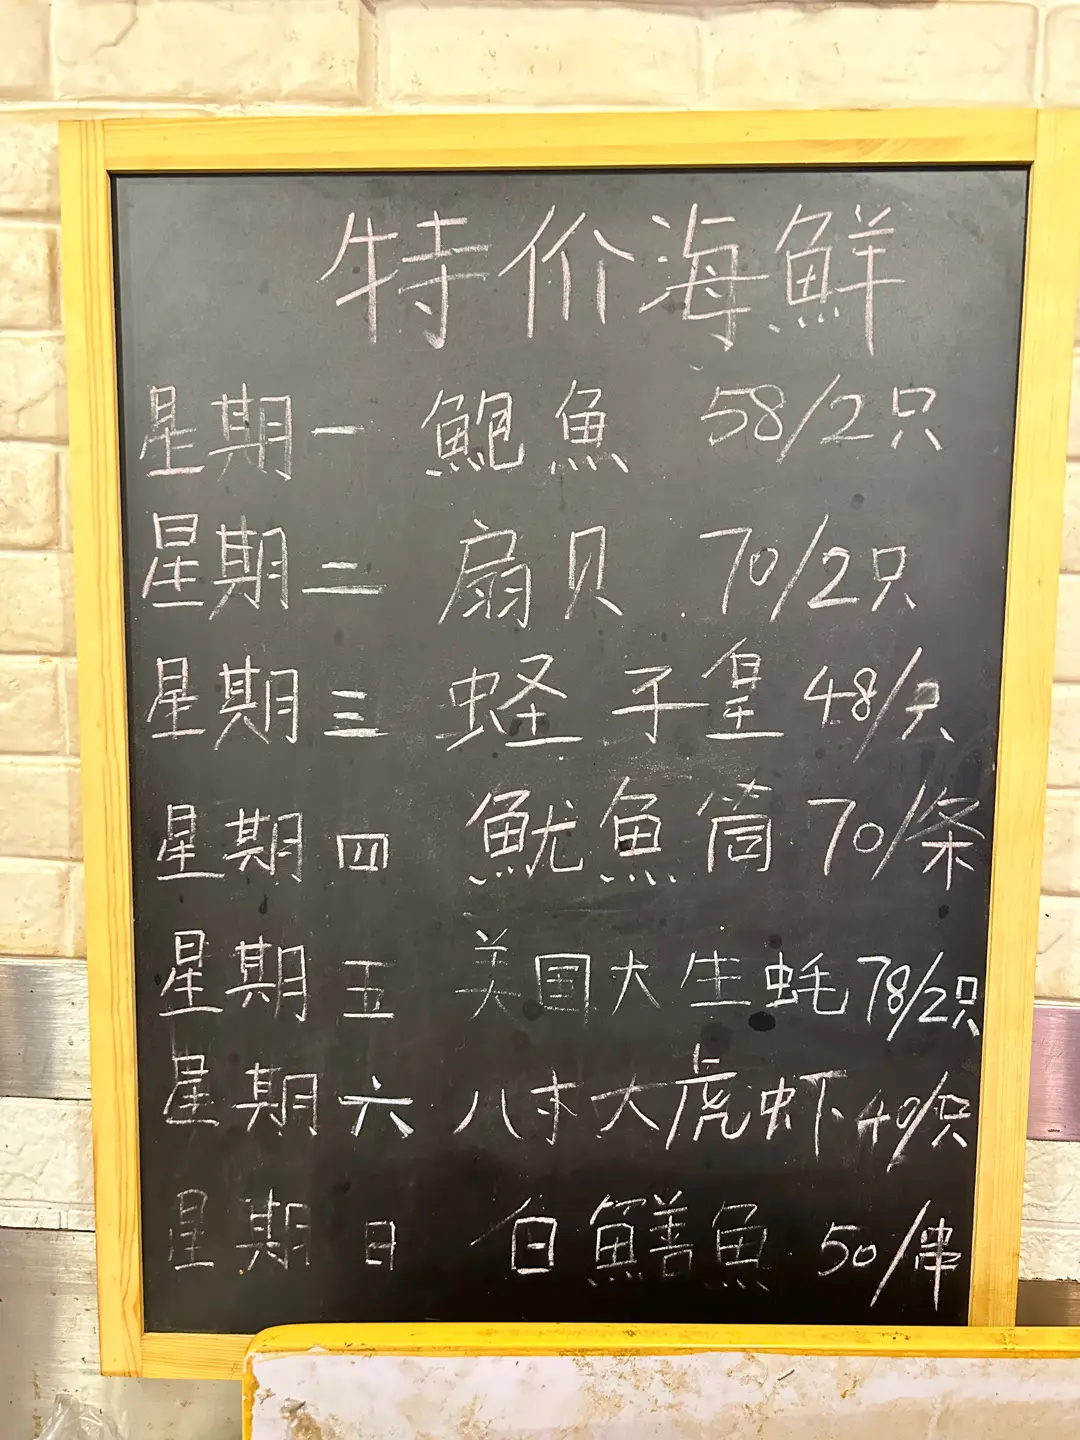 特价海鲜
星期一 鲍鱼 58/2只
星期二 扇贝 70/2只
星期三 蛏子皇 48/只
星期四 鱿鱼筒 70/条
星期五 美国大生蚝 78/2只
星期六 八寸大虎虾 40/只
星期日 白鳝鱼 50/串